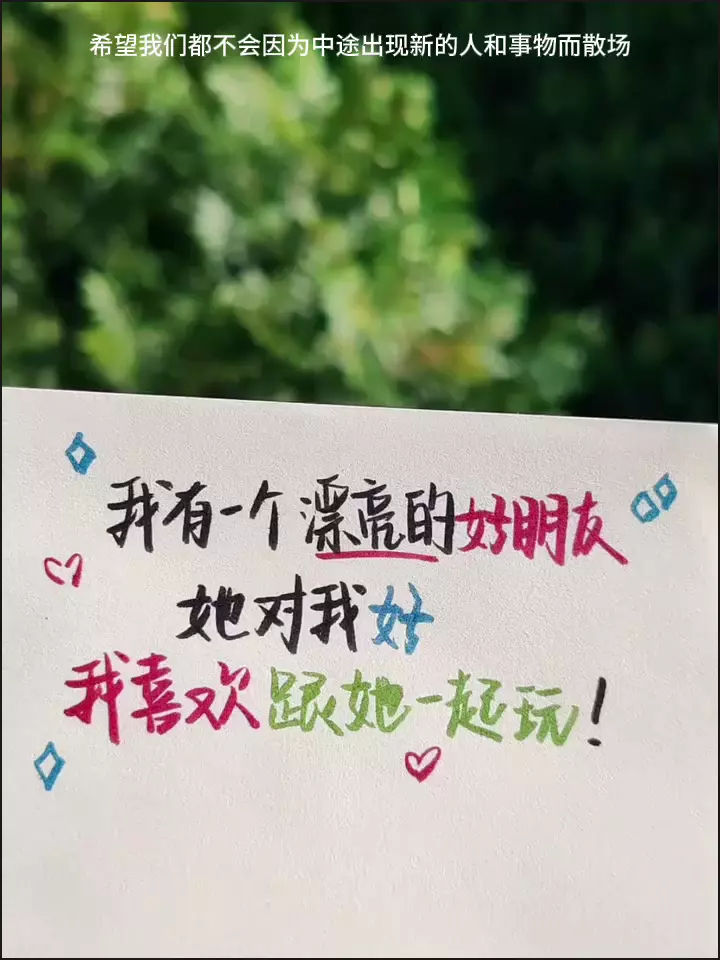 希望我们都不会因为中途出现新的人和事物而散场
我有一个漂亮的好朋友
她对我好
我喜欢跟她一起玩!